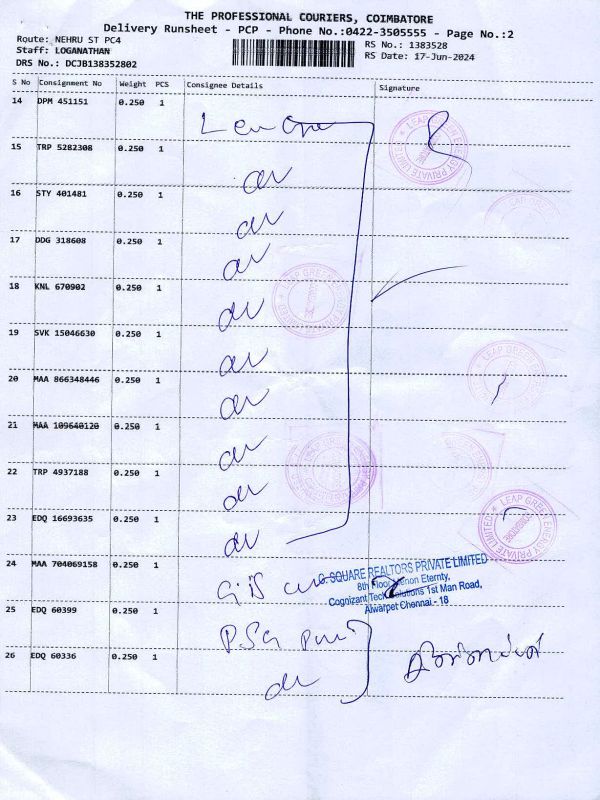 THE PROFESSIONAL COURIERS, COIMBATORE
Delivery Runsheet - PCP - Phone No.:0422-3505555 - Page No.:2
Route: NEHRU ST PC4
RS No.: 1383528
Staff: LOGANATHAN
RS Date: 17-Jun-2024
DRS No.: DCJB138352802
S No Consignment No Weight PCS Consignee Details Signature
14 DPM 451151 0.250 1
15 TRP 5282308 0.250 1
16 STY 401481 0.250 1
17 DDG 318608 0.250 1
18 KNL 670902 0.250 1
19 SVK 15046630 0.250 1
20 MAA 866348446 0.250 1
21 MAA 109640120 0.250 1
22 TRP 4937188 0.250 1
23 EDQ 16693635 0.250 1
LEAP GREEN ENERGY PRIVATE LIMITED
24 MAA 704069158 0.250 1
G SQUARE REALTORS PRIVATE LIMITED
8th Floor, Menon Eternty,
Cognizant Tech Solutions 1st Man Road,
Alwarpet Chennai - 18
25 EDQ 60399 0.250 1
PSG
26 EDQ 60336 0.250 1